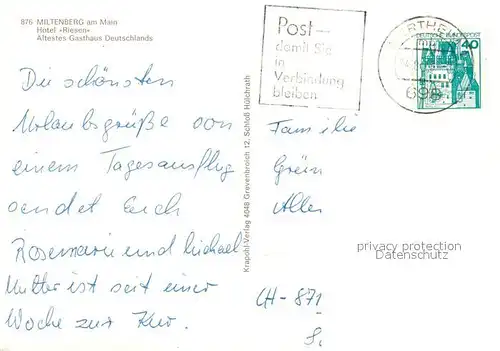 876 MILTENBERG am Main
Hotel »Riesen«
Ältestes Gasthaus Deutschlands
Die schönsten
Urlaubsgrüße von
einem Tagesausflug
sendet Euch
Rosemarie und Michael
Mutter ist seit einer
Woche zur Kur.
Krapohl-Verlag 4048 Grevenbroich 12, Schloß Hülchrath
Post—
damit Sie
in
Verbindung
bleiben
WERTHEIM
698
40
Familie
Grün
Allen
privacy protection
Datenschutz
CH-871
S.